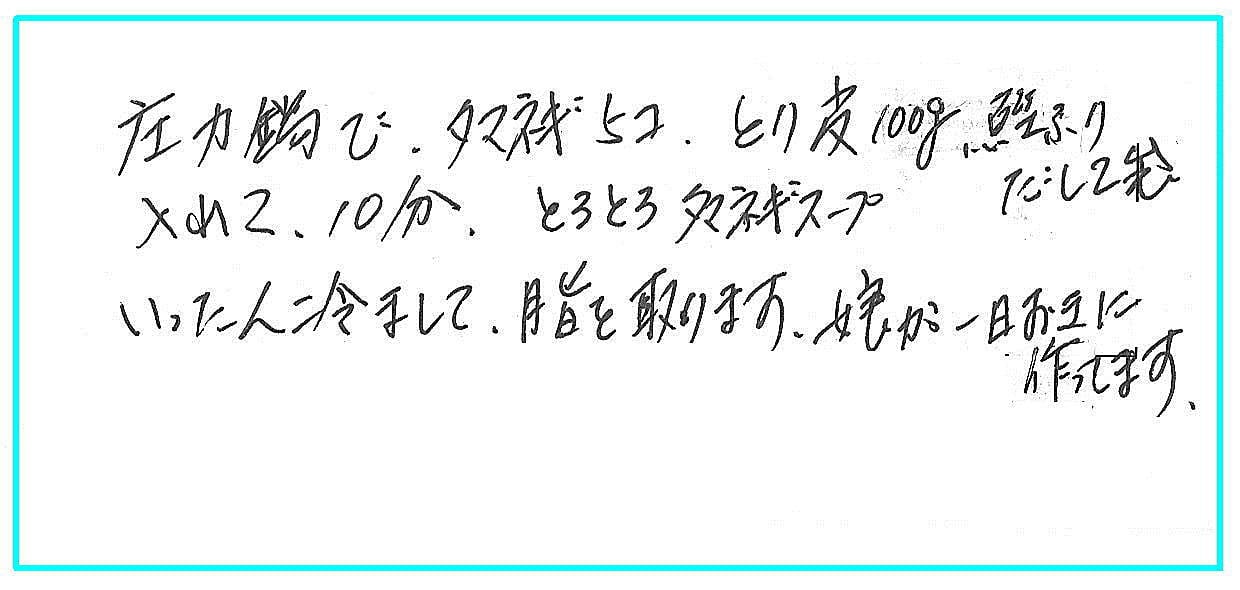 圧力鍋で、タマネギ5コ、とり皮100g
だして2
入れて、10分、とろとろタマネギスープ
いったん冷まして、脂を取ります、娘が一日おきに
作ってます、